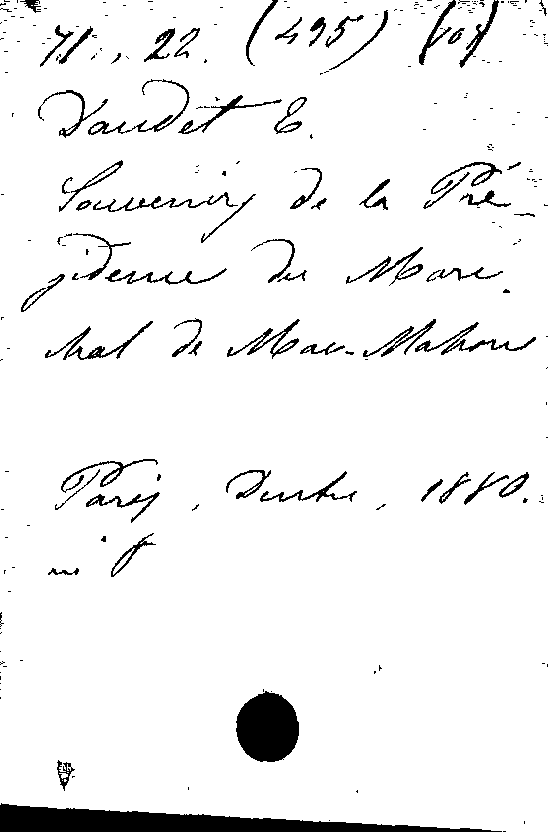 71., 22. (495) (107)
Daudet E.
Souvenirs de la Pré-
sidence du Maré.
chal de Mac-Mahon
Paris, Dentu, 1880.
in 8